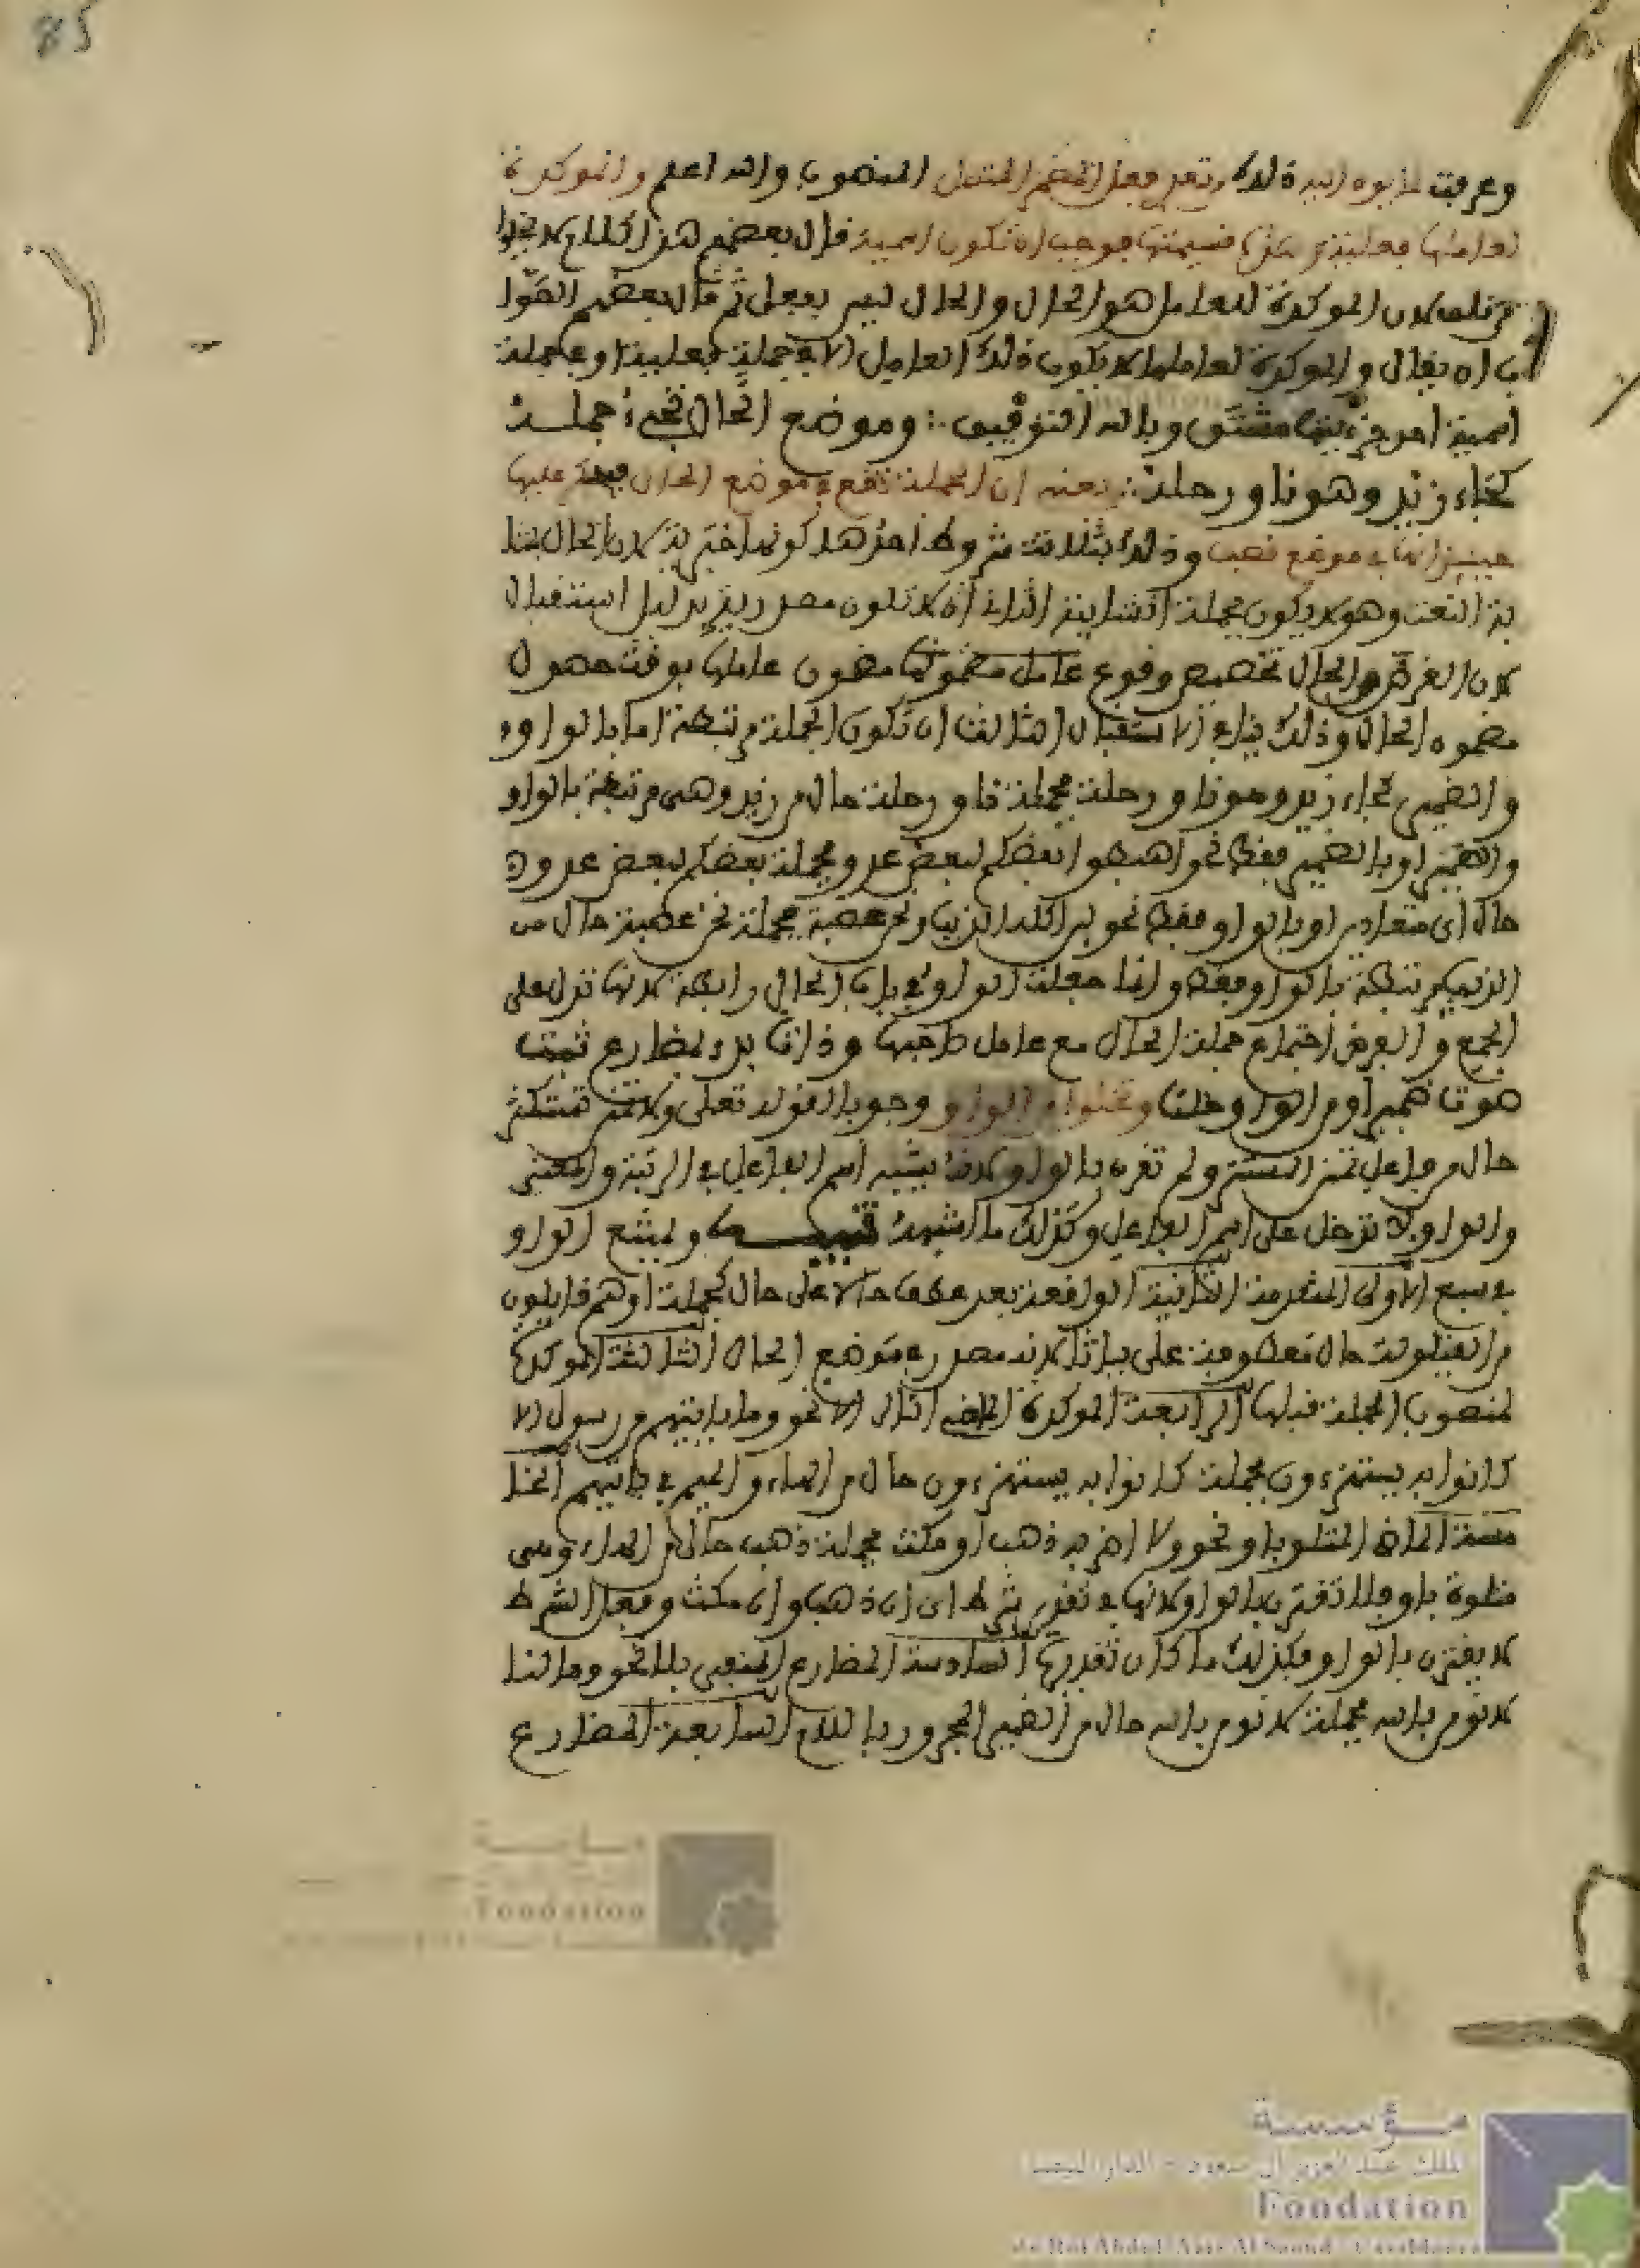 85
وعرفت والله اعلم والموكدة
فوجب ان تكون اسمية قال بعضهم هذا الكلام
لان الموكدة للعامل هو الحال والحال ليس بفعل ثم قال بعضهم الصوا
ب ان يقال والموكدة لعاملها لا يكون ذلك العامل الا في جملة فعلية او في جملة
اسمية احد جزئيها مشتق وبالله التوفيق وموضع الحال تجيء جملة
كجاء زيد وهو ناو رحلة يعني ان الجملة تقع في موضع الحال عليها
حينئذ انها في موضع نصب وذلك بثلاثة شروط احدها كونها خبرية لان الحال بمثا
بة النعت وهو لا يكون بجملة انشايية الثاني ان لا تكون مصدرية بدليل استقبال
لان الغرض من الحال تخصيص وقوع عامل مضمونها مضمون عاملها بوقت حصول
مضمون الحال وذلك ينافي الاستقبال الثالث ان تكون الجملة مرتبطة اما بالواو
والضمير كجاء زيد وهو ناو رحلة فجملة ناو رحلة حال من زيد وهي مرتبطة بالواو
والضمير او بالضمير فقط نحو اهبطوا بعضكم لبعض عدو فجملة بعضكم لبعض عدو
حال اي متعادين او بالواو فقط نحو لين اكله الذيب ونحن عصبة فجملة نحن عصبة حال من
الذيب مرتبطة بالواو فقط وانما جعلت الواو في باب الحال رابطة لانها تدل على
الجمع والغرض اجتماع جملة الحال مع عامل صاحبها وذات بدء بمضارع ثبت
حوت ضميرا ومن الواو خلت وتخلوا من الواو وجوبا لقوله تعلى ولا تمنن تستكثر
حال من فاعل تمنن المستتر ولم تقرن بالواو لانه يشبه اسم الفاعل في الزنة والمعنى
والواو لا تدخل على اسم الفاعل وكذلك ما اشبهه تنبيه ويمتنع الواو
في سبع الاولى المتقدمة الثانية الواقعة بعد عطف حالا على حال كجملة او هم قايلون
من القيلولة حال معطوفة على بياتا لانه مصدر في موضع الحال الثالثة الموكدة
لمضمون الجملة قبلها الرابعة الموكدة الماضي التالي الا نحو وما ياتيهم من رسول الا
كانوا به يستهزءون فجملة كانوا به يستهزءون حال من الهاء والميم في ياتيهم الخا
مسة الماضي المتلو باو نحو ولا اضربه ذهب او مكث فجملة ذهب حال من الهاء وهي
متلوة باو فلا تقترن بالواو لانها في تقدير شرط اي ان ذهب وان مكث وفعل الشرط
لا يقترن بالواو فكذلك ما كان تقديرها السادسة المضارع المنفي بلا نحو وما لنا
لا نومن بالله فجملة لا نومن بالله حال من الضمير المجرور باللام السابعة المضارع
مؤسسة
الملك عبد العزيز آل سعود - الدار البيضاء
Fondation
du Roi Abdul-Aziz Al Saoud - Casablanca